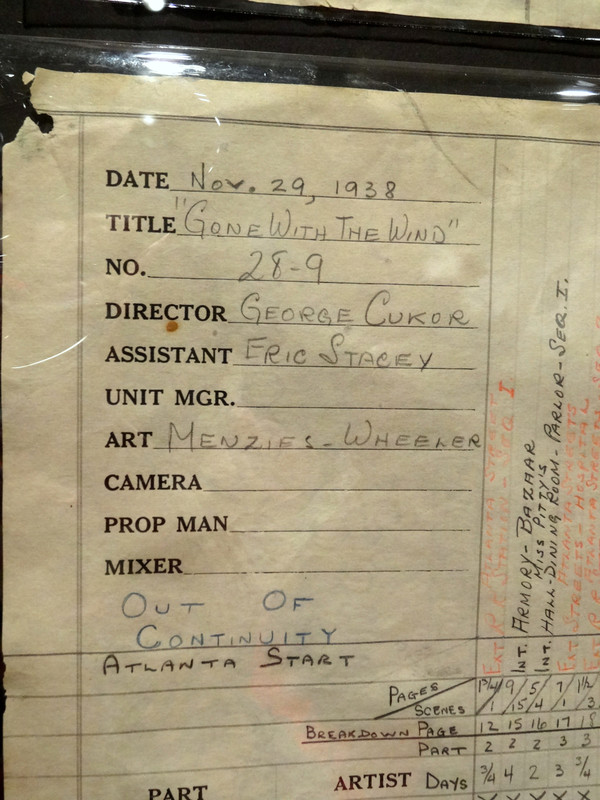 DATE Nov. 29, 1938
TITLE "GONE WITH THE WIND"
NO. 28-9
DIRECTOR GEORGE CUKOR
ASSISTANT ERIC STACEY
UNIT MGR.
ART MENZIES - WHEELER
CAMERA
PROP MAN
MIXER
OUT OF
CONTINUITY
ATLANTA START
INT. ARMORY - BAZAAR
MISS PITTY'S
INT. HALL - DINING ROOM - PARLOR - SEQ. I.
PAGES 1 3/4 9 5 7 1 1/2
SCENES 1 15 4 1 3
BREAKDOWN PAGE 12 15 16 17 18
PART 2 2 2 3 3
PART ARTIST DAYS 3/4 4 2 3 3/4